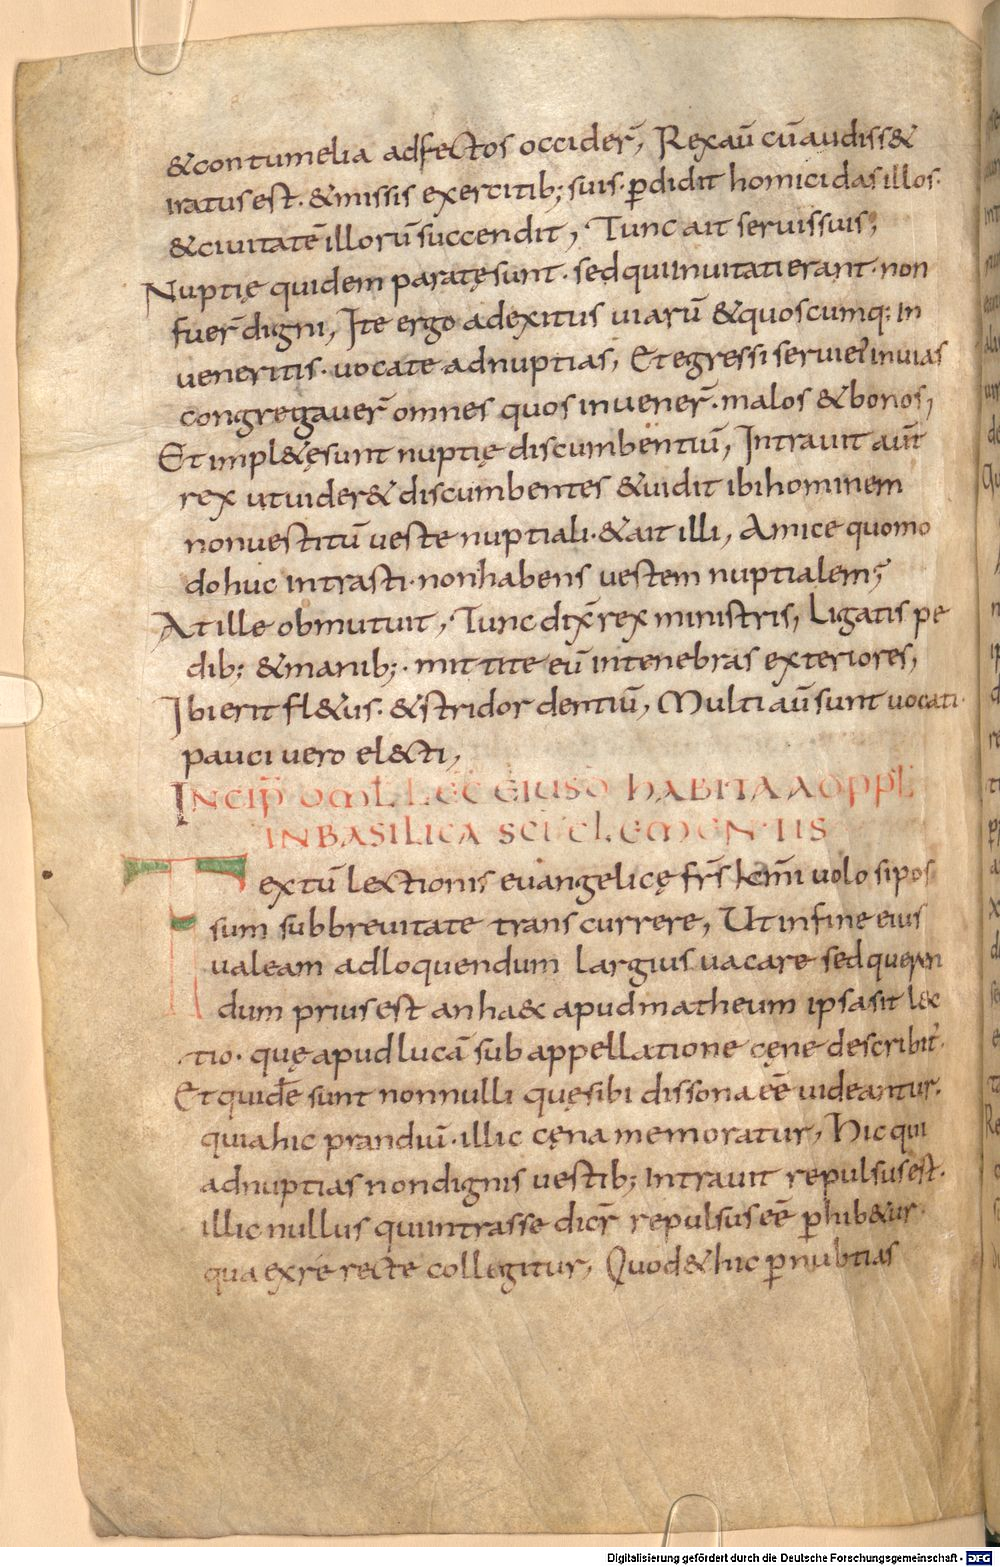 &contumelia adfectos occider̄, Rexaū cūaudiss&
iratusest·&missis exercitib; suis·ꝑdidit homicidasillos·
&ciuitatē illorū succendit, Tunc ait seruissuis;
Nuptię quidem paratęsunt·sedquiinuitatierant·non
fuer̄ digni, Ite ergo adexitus uiarū &quoscumq; in
ueneritis·uocate adnuptias, Et egressi serui inuias
congregauer̄ omnes quos inuener̄·malos &bonos,
Et impl&ęsunt nuptię discumbentiū, Intrauit aūt
rex utuider& discumbentes &uidit ibihominem
nonuestitū ueste nuptiali·&ait illi, Amice quomo
dohuc intrasti·nonhabens uestem nuptialem;
Atille obmutuit, Tunc dix̄ rex ministris, Ligatis pe
dib; &manib;·mittite eū intenebras exteriores,
Ibierit fl&us·&stridor dentiū, Multi aū sunt uocati·
pauci uero el&ti,
INCIP̄ OML̄ LEC̄ EIUSD̄ HABITA AD PPL̄
IN BASILICA SCĪ CLEMENTIS
Textū lectionis euangelicę fr̄s km̄i uolo sipos
sum subbreuitate transcurrere, Ut infine eius
ualeam adloquendum largius uacare sedqueren
dum priusest anhaec apudmatheum ipsasit l&
tio·quęapudlucā subappellatione cęne describit̄·
Et quidē sunt nonnulli quęsibi dissona eē uideantur·
quiahic prandiū·illic cęna memoratur, Hic qui
adnuptias nondignis uestib; intrauit repulsusest·
illic nullus quiintrasse dicit̄ repulsus eē ꝑhib&ur·
qua exrē recte collegitur, Quod&hic ꝑnubtias
Digitalisierung gefördert durch die Deutsche Forschungsgemeinschaft - DFG